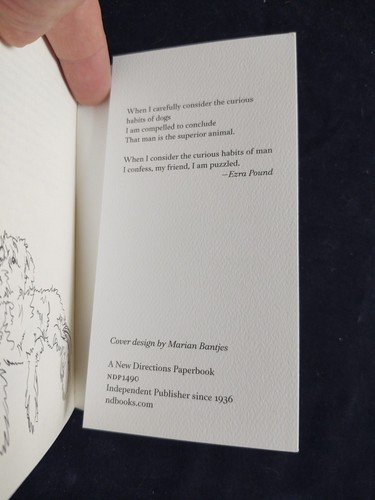 When I carefully consider the curious
habits of dogs
I am compelled to conclude
That man is the superior animal.
When I consider the curious habits of man
I confess, my friend, I am puzzled.
–Ezra Pound
Cover design by Marian Bantjes
A New Directions Paperbook
NDP1490
Independent Publisher since 1936
ndbooks.com